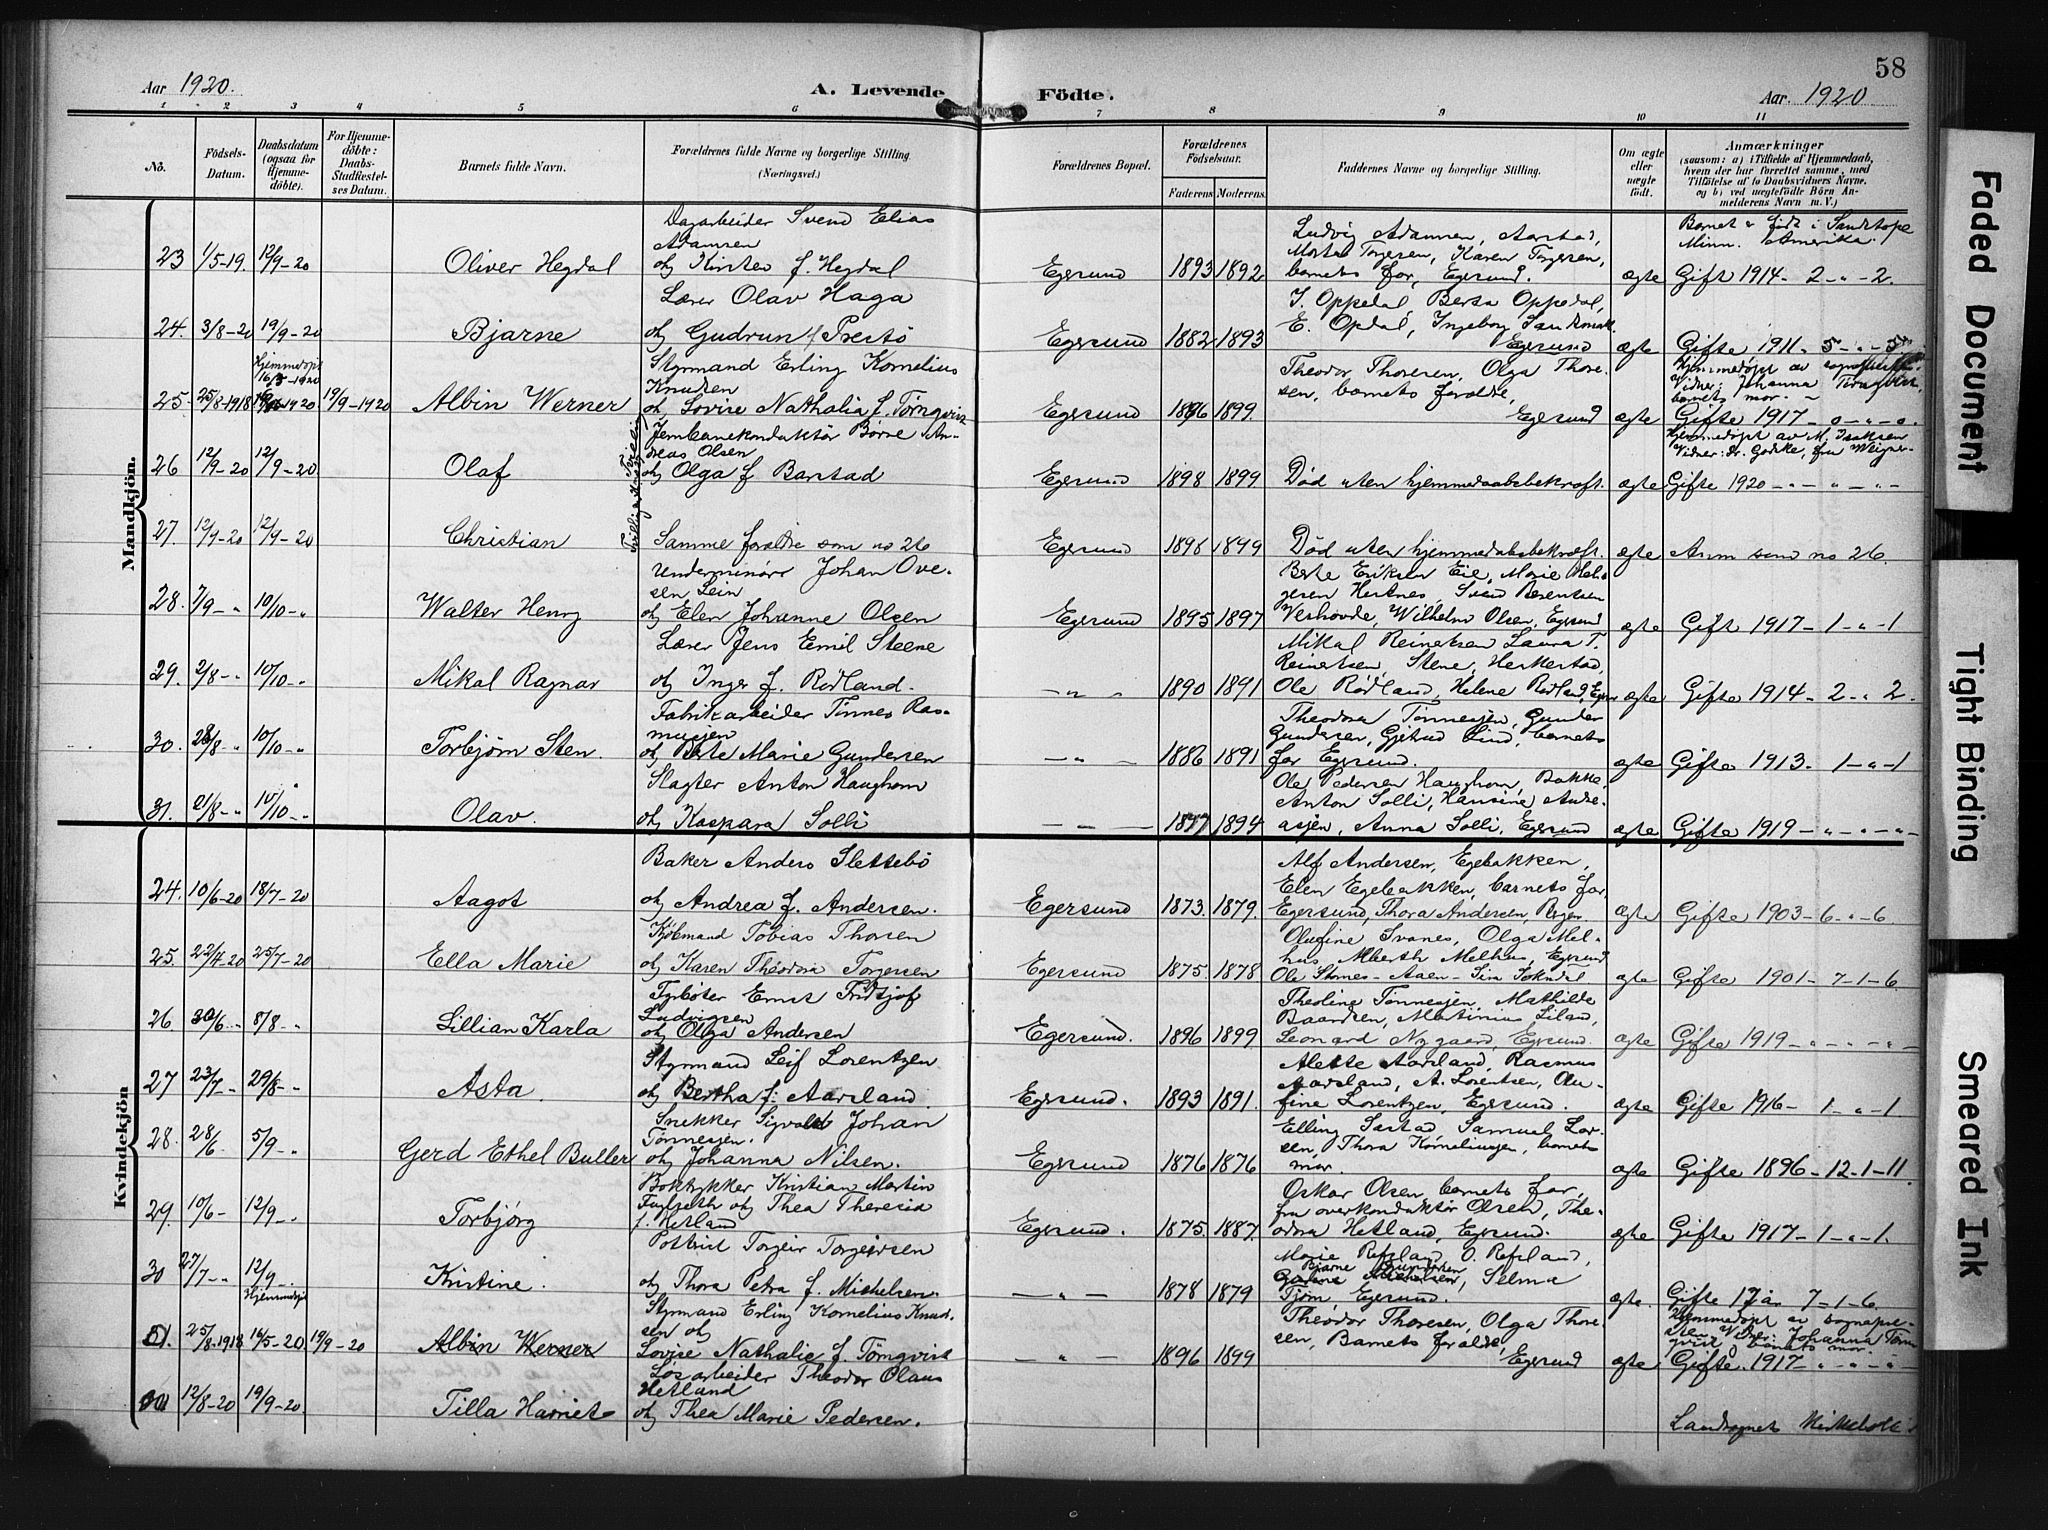 58
Aar 1920.
A. Levende Födte.
Aar. 1920
1 2 3 4 5 6 7 8 9 10 11
No.
Födsels-Datum.
Daabsdatum (ogsaa for Hjemme-döbte).
For Hjemme-döbte: Daabs-Stadfæstel-ses Datum.
Barnets fulde Navn.
Forældrenes fulde Navne og borgerlige Stilling. (Næringsvei.)
Forældrenes Bopæl.
Forældrenes Födselsaar.
Faderens
Moderens
Faddernes Navne og borgerlige Stilling.
Om ægte eller uægte födt.
Anmærkninger
(saasom: a) i Tilfælde af Hjemmedaab, hvem der har forrettet samme, med Tilföielse af to Daabsvidners Navne, og b) ved uægtefödte Börn An-melderens Navn m. V.)
Mandkjön.
23 1/5-19. 12/9-20 Oliver Hegdal
Dagarbeider Svend Elias
Adamsen
og Kirsten f. Hegdal
Egersund 1893 1892
Ludvig Adamsen, Aarstad,
Torgersen, Karen Torgersen,
barnets far, Egersund.
ægte
Barnet er født i
Minn. Amerika.
Gift 1914 - 2 - " - 2.
24. 3/8-20 19/9-20 Bjarne
Lærer Olav Haga
og Gudrun f Prestö
Egersund 1882 1893
I. Oppedal, Berta Oppedal,
E. Opdal, Ingeborg
Egersund
ægte Gifte 1911 - 5 - " - 5
25. 25/8-1918 Hjemmedøpt 16/5-1920 19/9-1920 Albin Werner
Styrmand Erling Kornelius
Knudsen
og Lovise Nathalia f. Tørnqvist
Egersund 1896 1899.
Theodor Thoresen, Olga Thore-
sen, barnets forældre,
Egersund ægte
Hjemmedøpt av sognepresten
Vidner: Johanna
barnets mor.
Gifte 1917 - o - " - o.
26 12/9-20 12/9-20 Olaf
Jernbanekonduktör Börre An-
dreas Olsen
og Olga f Barstad
Egersund 1898 1899.
Død uten hjemmedaabsbekræft. ægte
Hjemmedøpt av M. Isaksen
Vidner: dr. fru
Gifte 1920 - " - " - " -
27. 12/9-20 12/9-20 Christian
Samme forældre som no 26
Egersund 1898 1899
Død uten hjemmedaabsbekræft. ægte Anm som no 26.
28. 7/9- " 10/10- " Walter Henry
Underminörr Johan Ove-
sen Lein
og Elen Johanne Olsen
Egersund 1895 1897
Berte Eriksen Eie, Marie Hel-
gesen Hestnes, Svend Berentsen
Vershovde, Wilhelm Olsen, Egersund
ægte Gift 1917 - 1 - " - 1
29. 2/8- " 10/10- " Mikal Ragnar
Lærer Jens Emil Steene
og Inger f. Rødland.
- " - 1890 1891
Mikal Reinertsen Laura T.
Reinertsen, Stene, Heskestad,
Ole Rødland, Helene Rødland,
ægte Gifte 1914 - 2 - " 2.
30. 28/8- " 10/10- " Torbjørn Sten.
Fabrikarbeider Tönnes Ras-
mussen
og Berte Marie Gundersen
- " - 1886 1891
Theodora Tønnesjen, Gunder
Gundersen, Gjetrud Lind, barnets
far Egersund.
ægte Gifte 1913. 1 - " - 1
31. 21/8- " 10/10- " Olav.
Slagter Anton Haughom
og Kaspara Solli
- " - 1897 1894
Ole Pedersen Haughom, Bakke,
Anton Solli, Hansine Andre-
asjen, Anna Solli, Egersund
ægte Gifte 1919 - " - " - " -
Kvindekjön
24. 10/6-20 18/7-20 Aagot
Baker Anders Slettebö
og Andrea f. Andersen.
Egersund 1873. 1879.
Alf Andersen, Egebakken,
Elen Egebakken, barnets far,
Egersund, Thora Andersen,
ægte Gifte 1903 - 6 - " - 6
25. 22/4-20 25/7-20 Ella Marie
Kjöbmand Tobias Thorsen
og Karen Theodora Torgersen
Egersund 1875 1878
Olufine Svanes, Olga Mel-
hus Alberth Melhus, Egersund
Ole Stornes
ægte Gifte 1901 - 7 - 1 - 6
26 30/6- " 8/8- " Lillian Karla
Fyrböter Ernst Fridtjof
Ludvigsen
og Olga Andersen
Egersund. 1896 1899
Theoline Tønnesjen, Mathilde
Baardsen, Martinius Liland,
Leonard Nygaard, Egersund.
ægte Gifte 1919 - " - " - " -
27 23/7- " 29/8- " Asta.
Styrmand Leif Lorentzen
og Bertha f. Aarsland.
Egersund. 1893 1891.
Alette Aarsland, Rasmus
Aarsland, A. Lorentsen, Olu-
fine Lorentzen, Egersund.
ægte Gifte 1916 - 1 - " - 1
28. 28/6 5/9- " Gerd Ethel Buller
Snekker Sigvald Johan
Tønnesjen.
og Johanna Nilsen.
Egersund 1876 1876
Elling Sæstad Samuel Lar-
sen, Thora Kornelingen, barnets
mor.
ægte Gifte 1896 - 12 - 1 - 11
29. 10/6- 12/9- Torbjørg
Boktrykker Kristian Martin
og Thea Theresia
f. Hetland
Egersund. 1875. 1887.
Oskar Olsen, barnets far,
fru overkonduktör Olsen, The-
odora Hetland, Egersund.
ægte Gifte 1917 - 1 - " - 1.
30 27/7- " 12/9- Kristine.
Postbud Torgeir Torgeirsen
og Thora Petra f. Michelsen.
- " - 1878 1879
Marie Refsland, O. Refsland,
Bjarne
Selma
Tjørn Egersund.
ægte. Gifte 17 år 7 - 1 - 6.
31. 25/8-1918 Hjemmedøpt 16/5-20 19/9-20 Albin Werner
Styrmand Erling Kornelius Knud-
sen og
Lovise Nathalie f. Tørnqvist
- " - 1896 1899
Theodor Thoresen, Olga Thore-
sen, Barnets forældre,
Egersund ægte
Hjemmedøpt av sognepre-
sten Vidner: Johanna Tørn-
qvist barnets mor.
Gifte 1917 " " "
12/8-20 19/9-20. Tilla Harriet
Løsarbeider Theodor Olaus
Hetland
og Thea Marie Pedersen.
Landsognets
Faded Document
Tight Binding
Smeared Ink